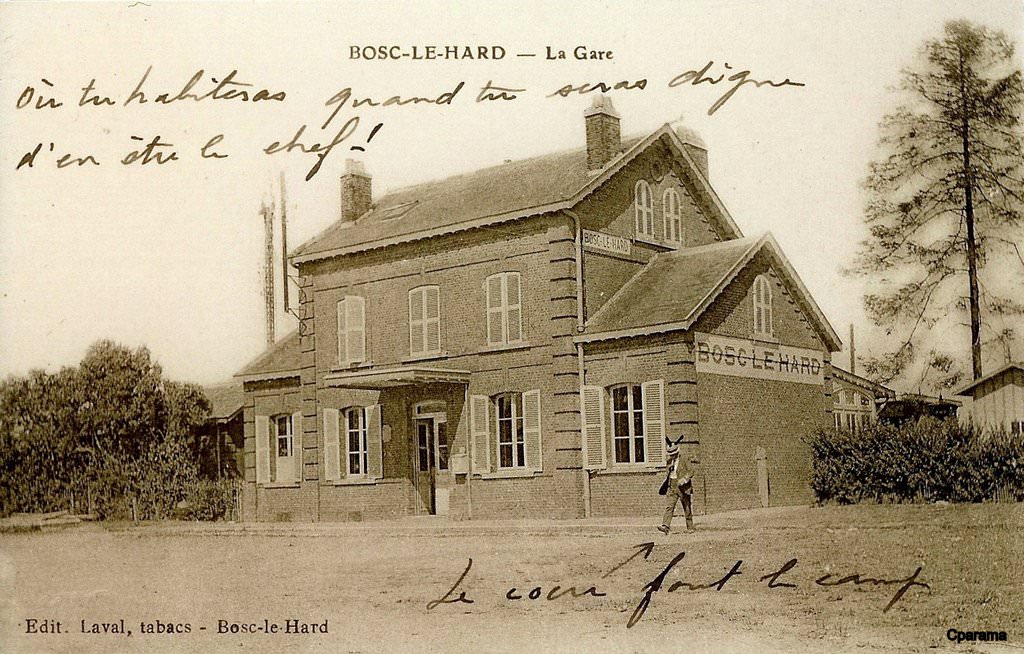 BOSC-LE-HARD — La Gare
Où tu habiteras quand tu seras digne
d'en être le chef!
BOSC-LE-HARD
BOSC-LE-HARD
Le cocu font le camp
Edit. Laval, tabacs - Bosc-le-Hard
Cparama